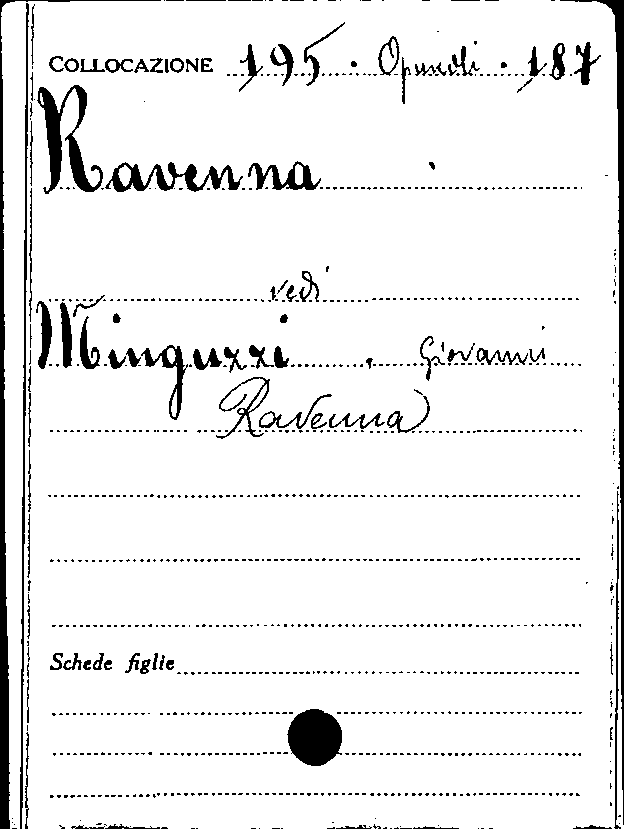 COLLOCAZIONE 195 . Opuscoli . 187
Ravenna
vedi
Minguzzi . Giovanni
Ravenna
Schede figlie